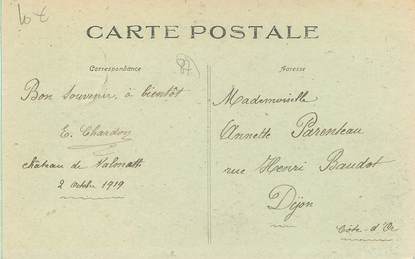 CARTE POSTALE
Correspondance
Adresse
Bon souvenir, à bientôt
E. Chardon
château de
2 octobre 1919
Mademoiselle
Annette Parenteau
rue Henri Baudot
Dijon
Côte-d'Or